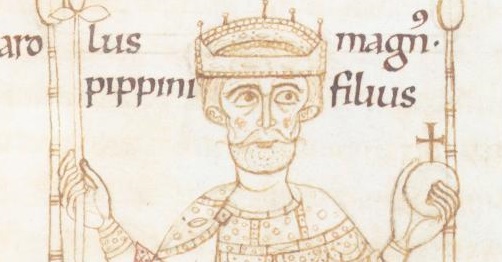 aro lus magn̉·
pippini filius